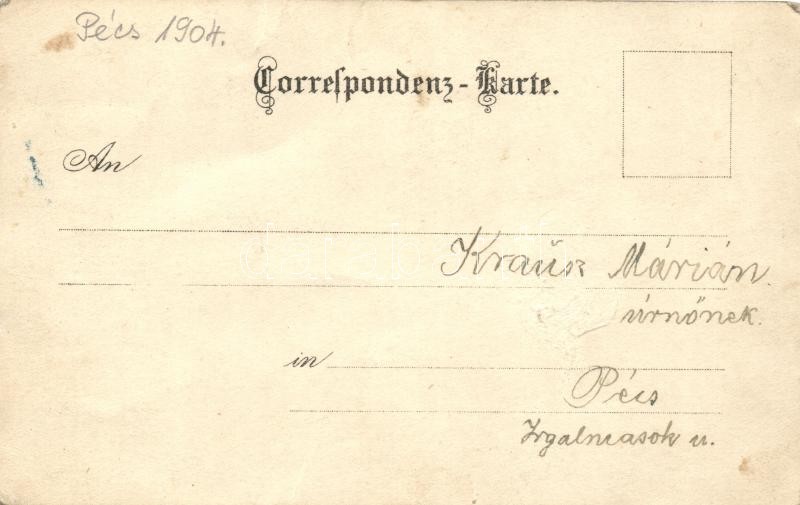 Pécs 1904.
Correſpondenz-Karte.
An
Kraŭsz Márián
úrnőnek.
in
Pécs
Irgalmasok u.